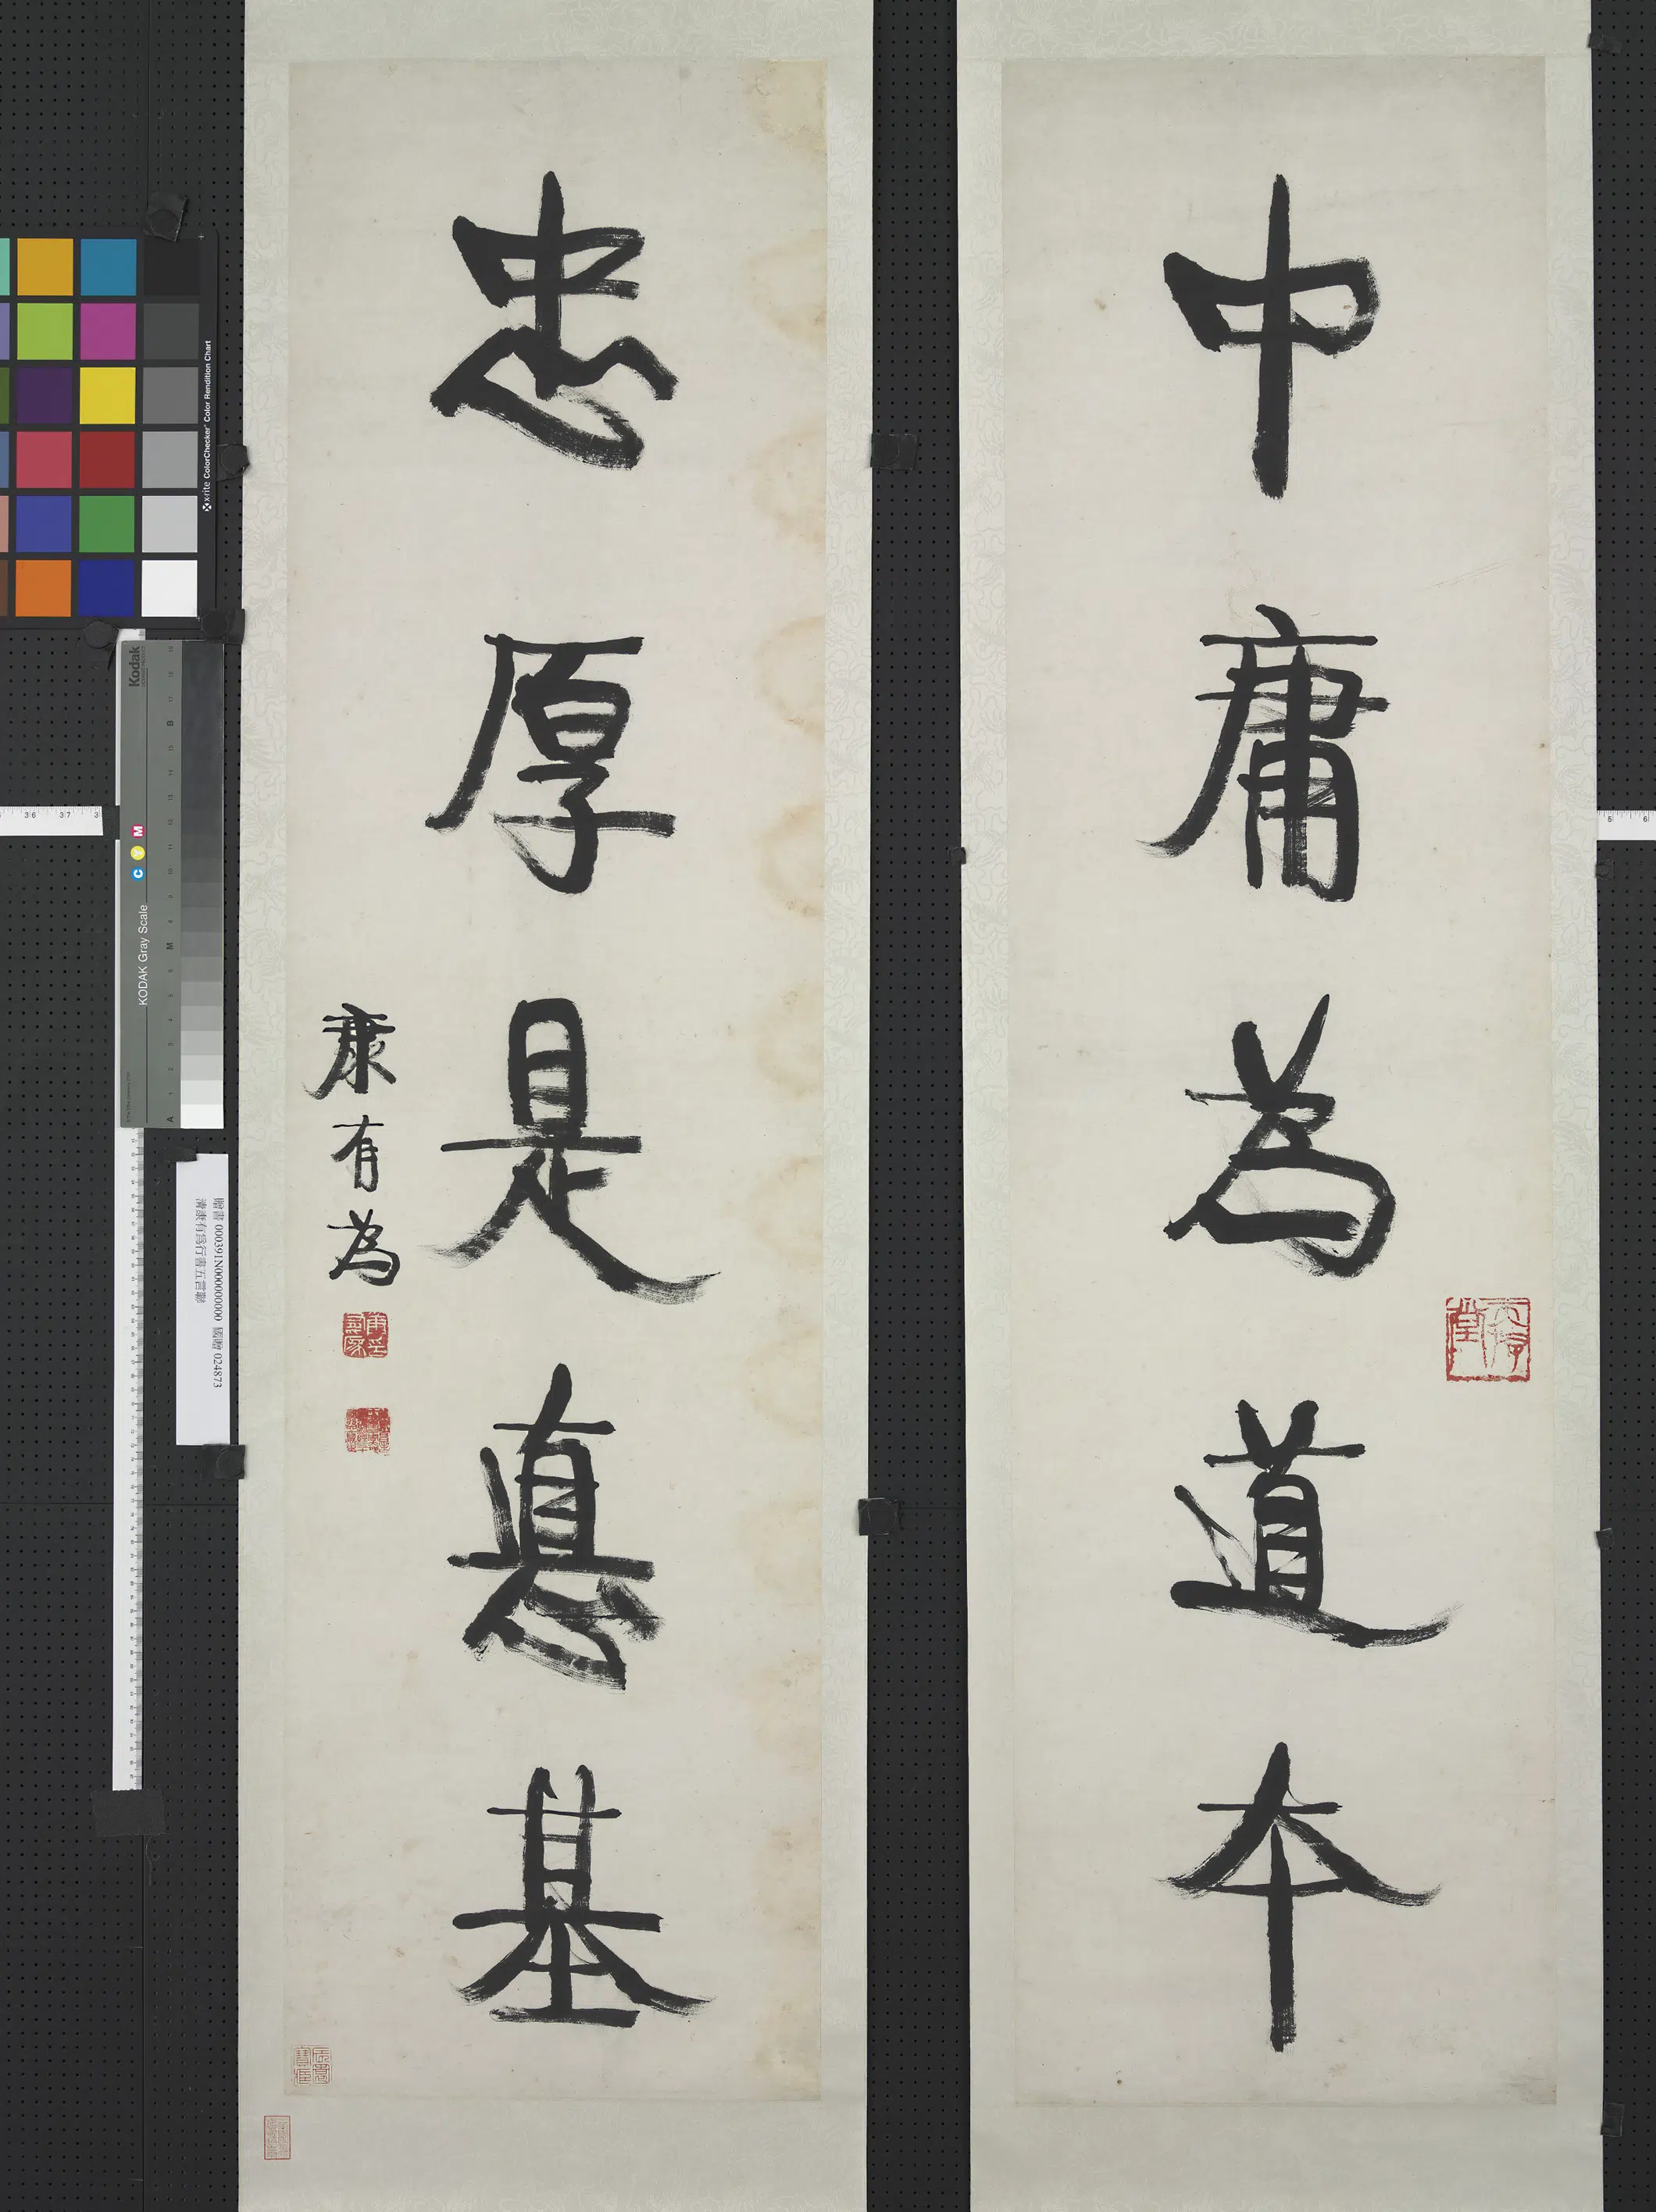 中庸為道本
忠厚是悳基
康有為
贈書 000391N000000000 國贈 024873
清康有為行書五言聯
x-rite ColorChecker Color Rendition Chart
Kodak
KODAK Gray Scale
C Y M